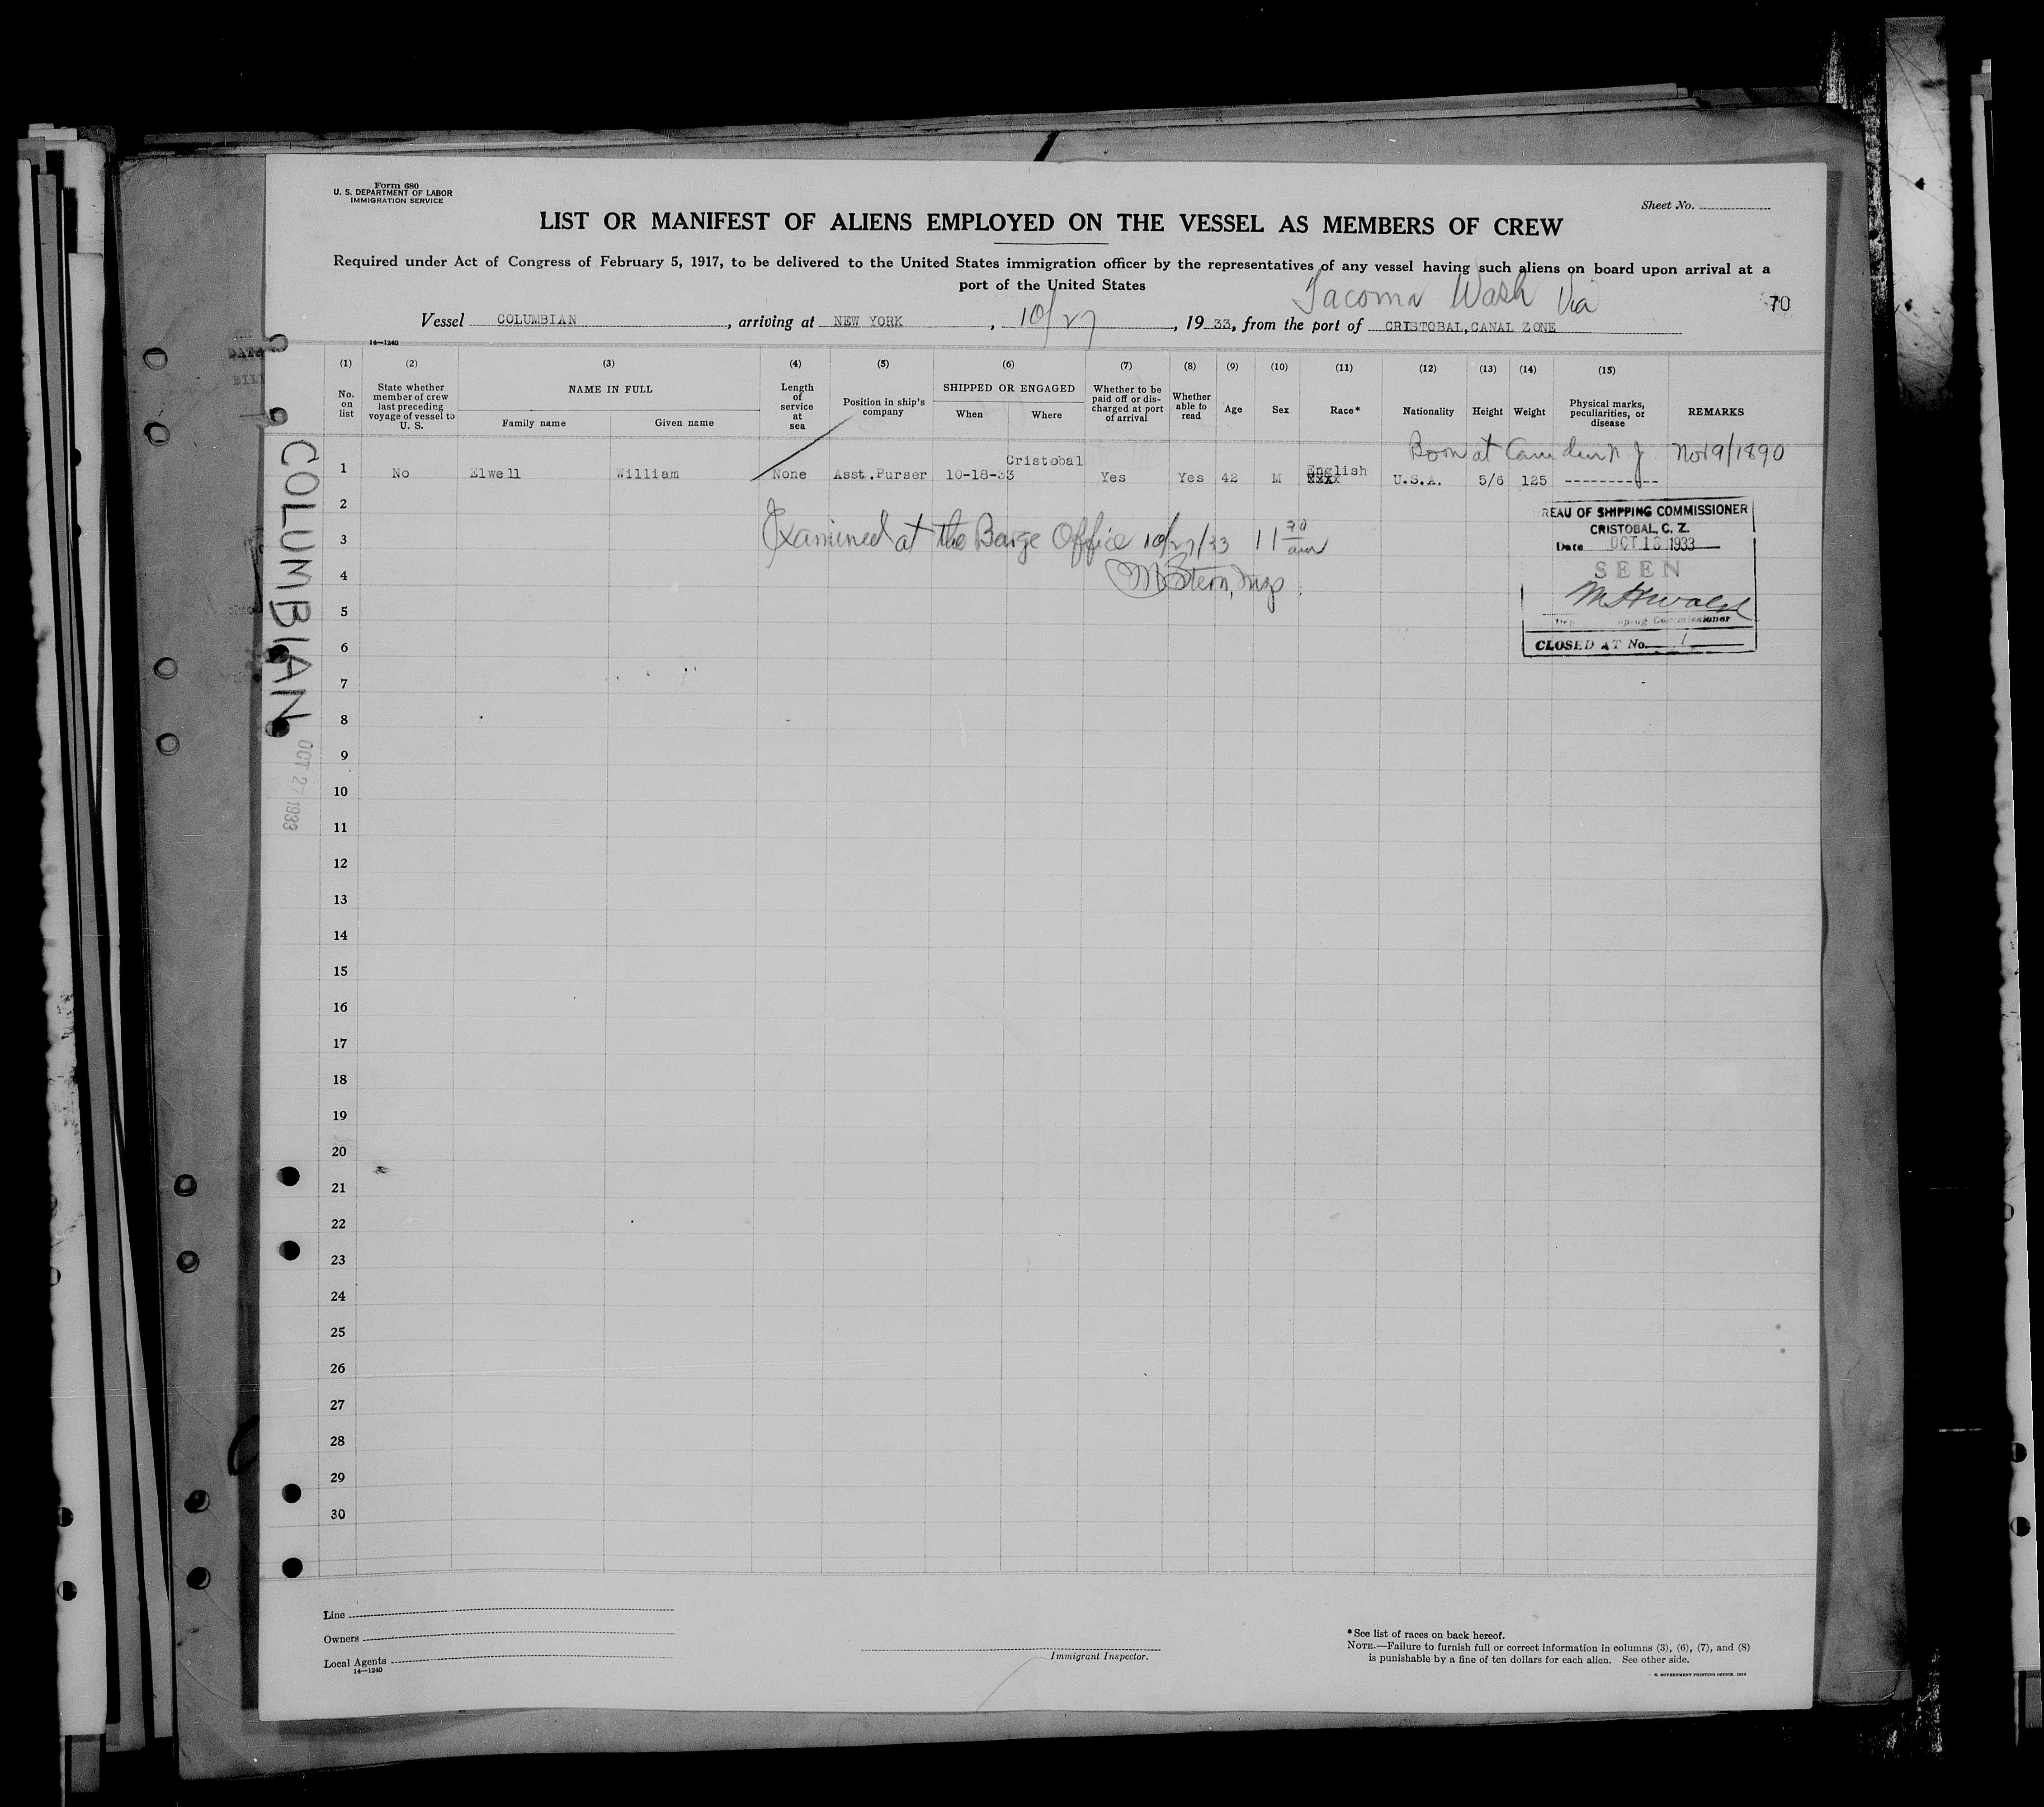 Form 680
U. S. DEPARTMENT OF LABOR
IMMIGRATION SERVICE
Sheet No.
LIST OR MANIFEST OF ALIENS EMPLOYED ON THE VESSEL AS MEMBERS OF CREW
Required under Act of Congress of February 5, 1917, to be delivered to the United States immigration officer by the representatives of any vessel having such aliens on board upon arrival at a
port of the United States
Tacoma Wash Via
70
Vessel COLUMBIAN, arriving at NEW YORK, 10/27, 1933, from the port of CRISTOBAL, CANAL ZONE
14—1240
(1) (2) (3) (4) (5) (6) (7) (8) (9) (10) (11) (12) (13) (14) (15)
No. on list
State whether member of crew last preceding voyage of vessel to U. S.
NAME IN FULL
Family name
Given name
Length of service at sea
Position in ship's company
SHIPPED OR ENGAGED
When
Where
Whether to be paid off or discharged at port of arrival
Whether able to read
Age
Sex
Race*
Nationality
Height
Weight
Physical marks, peculiarities, or disease
REMARKS
Born at Camden N J Nov 9/1890
1 No Elwell William None Asst.Purser 10-18-33 Cristobal Yes Yes 42 M English U.S.A. 5/6 125 -----------
2
3
4
5
6
7
8
9
10
11
12
13
14
15
16
17
18
19
20
21
22
23
24
25
26
27
28
29
30
Examined at the Barge Office 10/27/33 11 30 am
M Stern, Insp
REAU OF SHIPPING COMMISSIONER
CRISTOBAL, C. Z.
Date OCT 18 1933
SEEN
Shipping Commissioner
CLOSED AT No. 1
COLUMBIAN
OCT 27 1933
Line
Owners
Local Agents
14—1240
Immigrant Inspector.
*See list of races on back hereof.
NOTE.—Failure to furnish full or correct information in columns (3), (6), (7), and (8)
is punishable by a fine of ten dollars for each alien. See other side.
GOVERNMENT PRINTING OFFICE